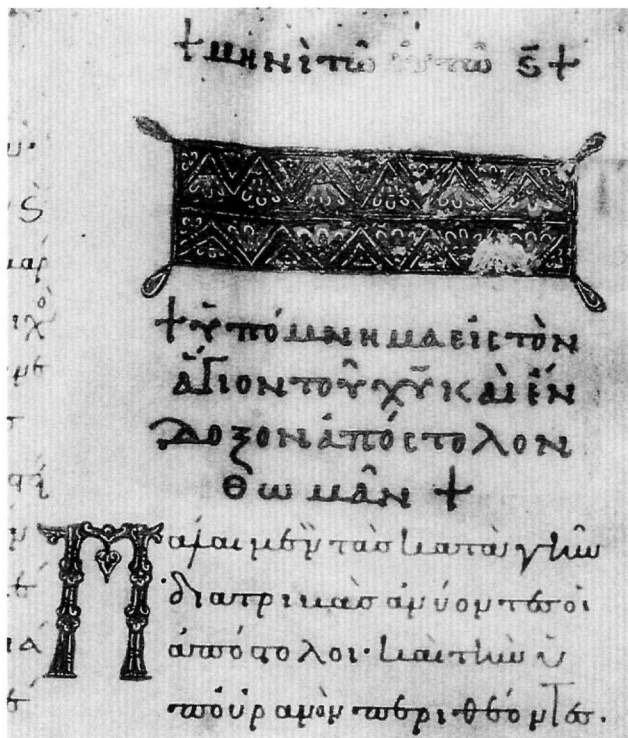 + μηνὶ τῶ αὐτῶ ς̄ +
+ ὑπόμνημα εἰς τὸν
ἅγιον τοῦ χ̅υ̅ καὶ ἔν
δοξον ἀπόστολον
θωμᾶν +
Πάλαι μὲν τὰς κατὰ γῆν
διατριβὰς ἀνύοντες οἱ
ἀπόστολοι· καὶ τὴν ὑ
π' οὐρανὸν περιθέοντες.